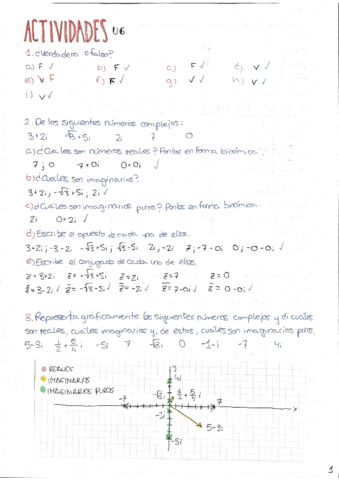 ACTIVIDADES U6
1. ¿Verdadero o falso?
a) F ✓ b) F ✓ c) F ✓ d) V ✓
e) V F f) F ✓ g) V ✓ h) V ✓
i) V ✓
2. De los siguientes números complejos:
3+2i √3+5i 2i 7 0
a) ¿Cuáles son números reales? Ponlos en forma binómica.
7; 0 7+0i 0+0i ✓
b) ¿Cuáles son imaginarios?
3+2i; -√3+5i; 2i ✓
c) ¿Cuáles son imaginarios puros? Ponlos en forma binómica.
2i 0+2i ✓
d) Escribe el opuesto de cada uno de ellos.
3+2i; -3-2i -√3+5i; √3-5i 2i; -2i 7; -7-0i 0; -0-0i ✓
e) Escribe el conjugado de cada uno de ellos.
z=3+2i z=-√3+5i z=2i z=7 z=0
z̄=3-2i ✓ z̄=-√3-5i ✓ z̄=-2i ✓ z̄=7-0i ✓ z̄=0-0i ✓
3. Representa gráficamente los siguientes números complejos y di cuáles
son reales, cuáles imaginarios y, de estos, cuáles son imaginarios puros.
5-3i 1/2+5/4i -5i 7 √3i 0 -1-i -7 4i
REALES
IMAGINARIOS
IMAGINARIOS PUROS
4i
√3i 1/2+5/4i
-7 7
-1i x
5-3i
-5i
1